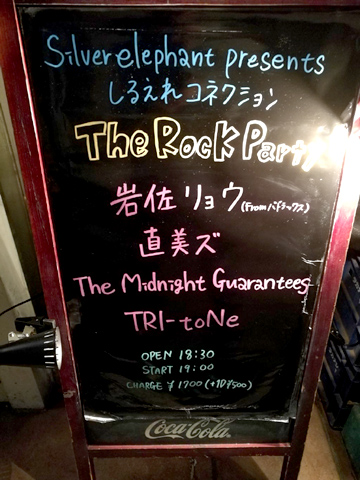 Silverelephant presents
しるえれコネクション
The Rock Party
岩佐リョウ(From バドラックス)
直美ズ
The Midnight Guarantees
TRI-toNe
OPEN 18:30
START 19:00
CHARGE ¥1700(+1D¥500)
Coca-Cola